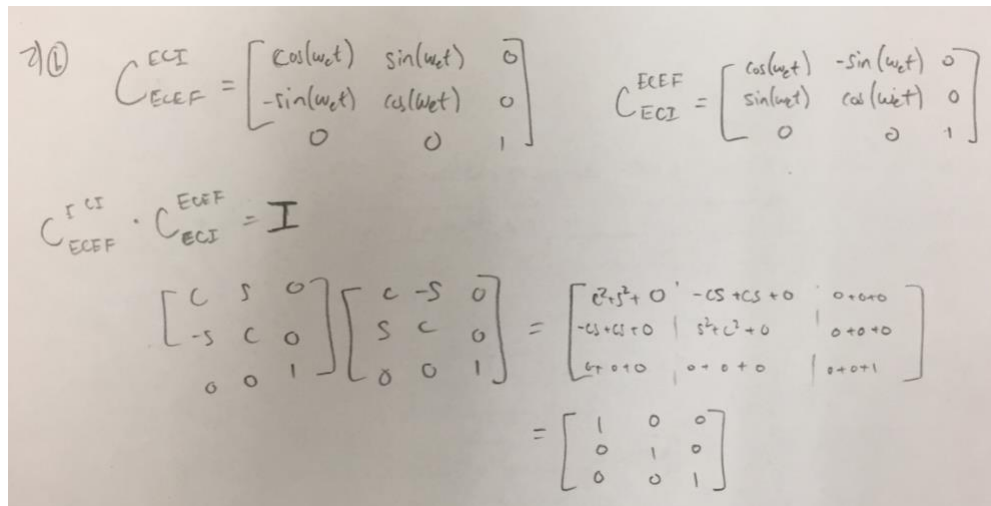 2) ⓑ C_ECEF^ECI = [cos(ωet) sin(ωet) 0
-sin(ωet) cos(ωet) 0
0 0 1]
C_ECI^ECEF = [cos(ωet) -sin(ωet) 0
sin(ωet) cos(ωet) 0
0 0 1]
C_ECEF^ECI · C_ECI^ECEF = I
[C S 0
-S C 0
0 0 1] [C -S 0
S C 0
0 0 1] = [c²+s²+0 -cs+cs+0 0+0+0
-cs+cs+0 s²+c²+0 0+0+0
0+0+0 0+0+0 0+0+1]
= [1 0 0
0 1 0
0 0 1]